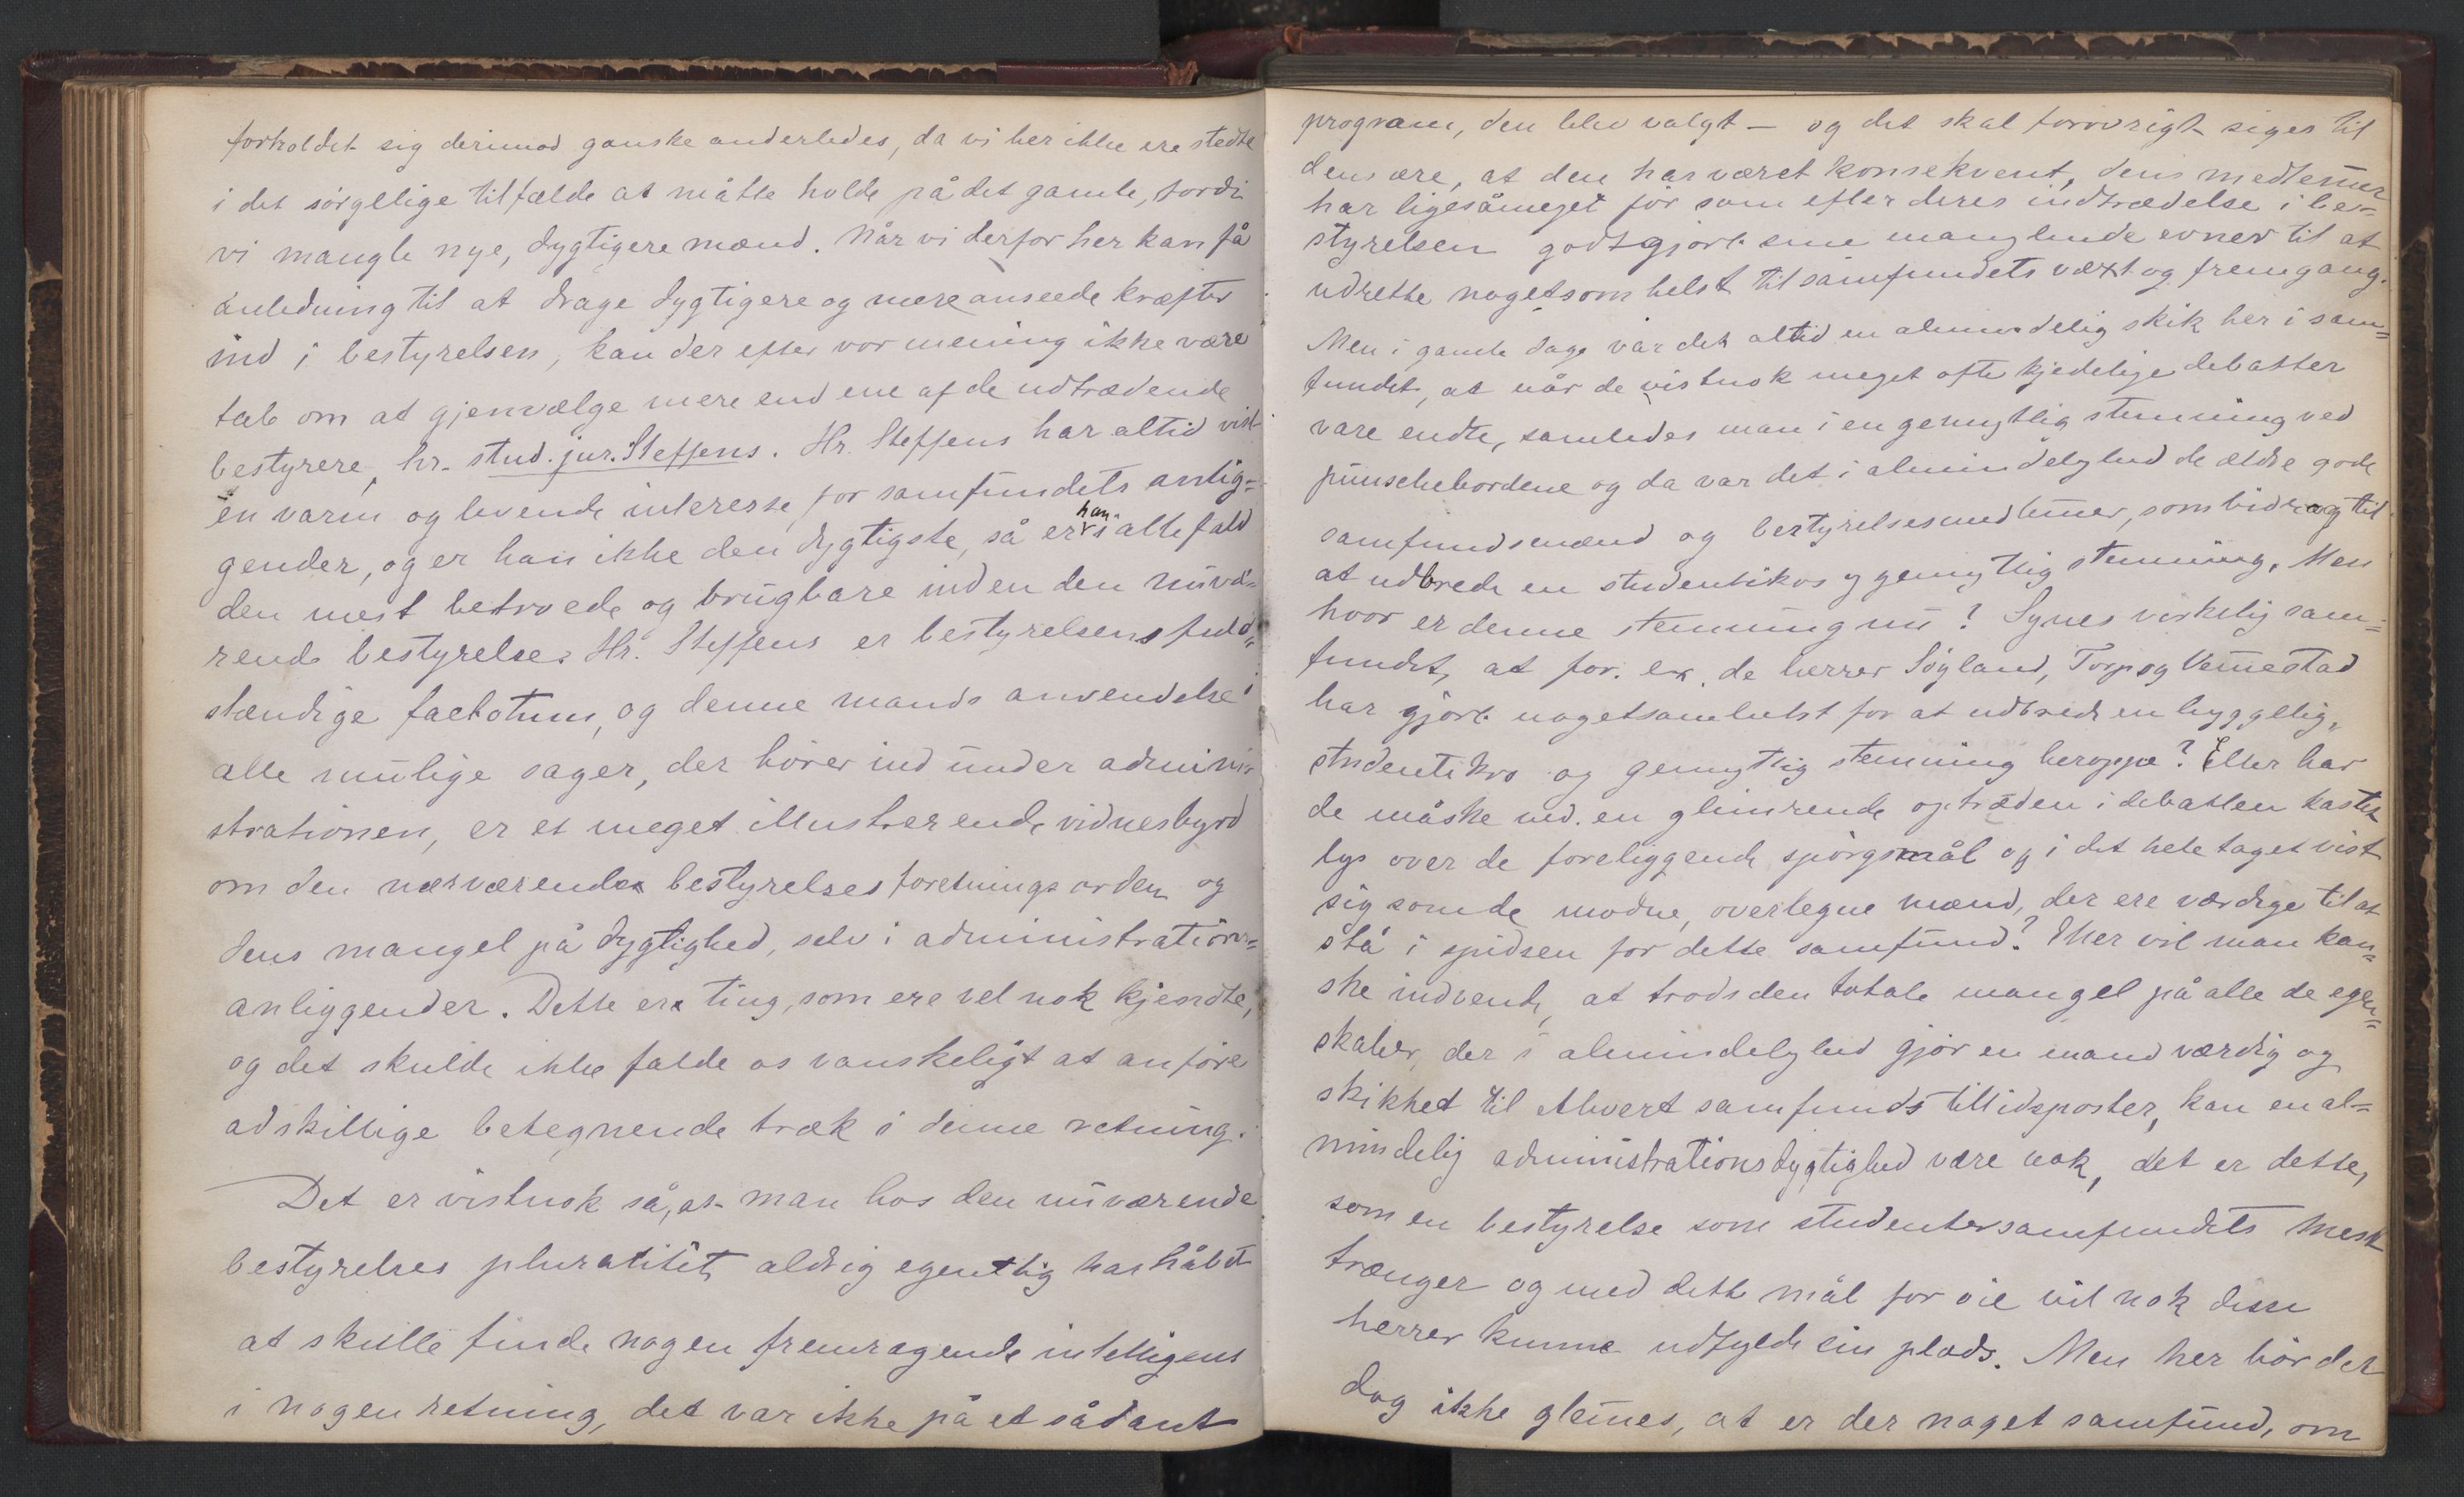 forholdet sig derimod ganske anderledes, da vi her ikke ere stedte
i det sörgelige tilfælde at måtte holde på det gamle, fordi
vi mangle nye, dygtigere mænd. Når vi derfor her kan få
anledning til at drage dygtigere og mere anseede kræfter
ind i bestyrelsen, kan der efter vor mening ikke være
tale om at gjenvælge mere end ene af de udtrædende
bestyrere, hr. stud. jur. Steffens. Hr. Steffens har altid vist
en varm og levende interesse for samfundets anlig=
gender, og er han ikke den dygtigste, så er han i alle fald
den mest betroede og brugbare inden den nuvæ=
rende bestyrelse. Hr. Steffens er bestyrelsens fuld=
stændige factotum, og denne mands anvendelse i
alle mulige sager, der hörer ind under admini=
strationen, er et meget illustrerende vidnesbyrd
om den nærværende bestyrelses foretningsorden og
dens mangel på dygtighed, selv i administrations=
anliggender. Dette er ting, som ere vel nok kjendte,
og det skulde ikke falde os vanskeligt at anföre
adskillige betegnende træk i denne retning.
Det er vistnok så, at man hos den nuværende
bestyrelses pluralitet aldrig egentlig har håbet
at skulle finde nogen fremragende intelligens
i nogen retning, det var ikke på et sådant
program, den blev valgt – og det skal forövrigt siges til
dens ære, at den har været konsekvent, dens medlemmer
har ligesåmeget för som efter deres indtrædelse i be=
styrelsen godtgjort sine manglende evner til at
udrette nogetsomhelst til samfundets væxt og fremgang.
Men i gamle dage var det altid en almindelig skik her i sam=
fundet, at når de vistnok meget ofte kjedelige debatter
vare endte, samledes man i en gemytlig stemning ved
punschebordene og da var det i almindelighed de ældre gode
samfundsmænd og bestyrelsesmedlemmer, som bidrog til
at udbrede en studentikos og gemytlig stemning. Men
hvor er denne stemning nu? Synes virkelig sam=
fundet, at for. ex. de herrer Sögland, Torp og Vemmestad
har gjort nogetsomhelst for at udbrede en hyggelig,
studentikos og gemytlig stemning heroppe? Eller har
de måske ved en glimrende optræden i debatten kastet
lys over de foreliggende spörgsmål og i det hele taget vist
sig som de modne, overlegne mænd, der ere værdige til at
stå i spidsen for dette samfund? Eller vil man kan=
ske indvende, at trods den totale mangel på alle de egen=
skaber, der i almindelighed gjör en mand værdig og
skikket til ethvert samfunds tillidsposter, kan en al=
mindelig administrationsdygtighed være nok, det er dette,
som en bestyrelse som studentersamfundets mest
trænger og med dette mål for öie vil nok disse
herrer kunne udfylde sin plads. Men her bör det
dog ikke glemmes, at er der noget samfund, om